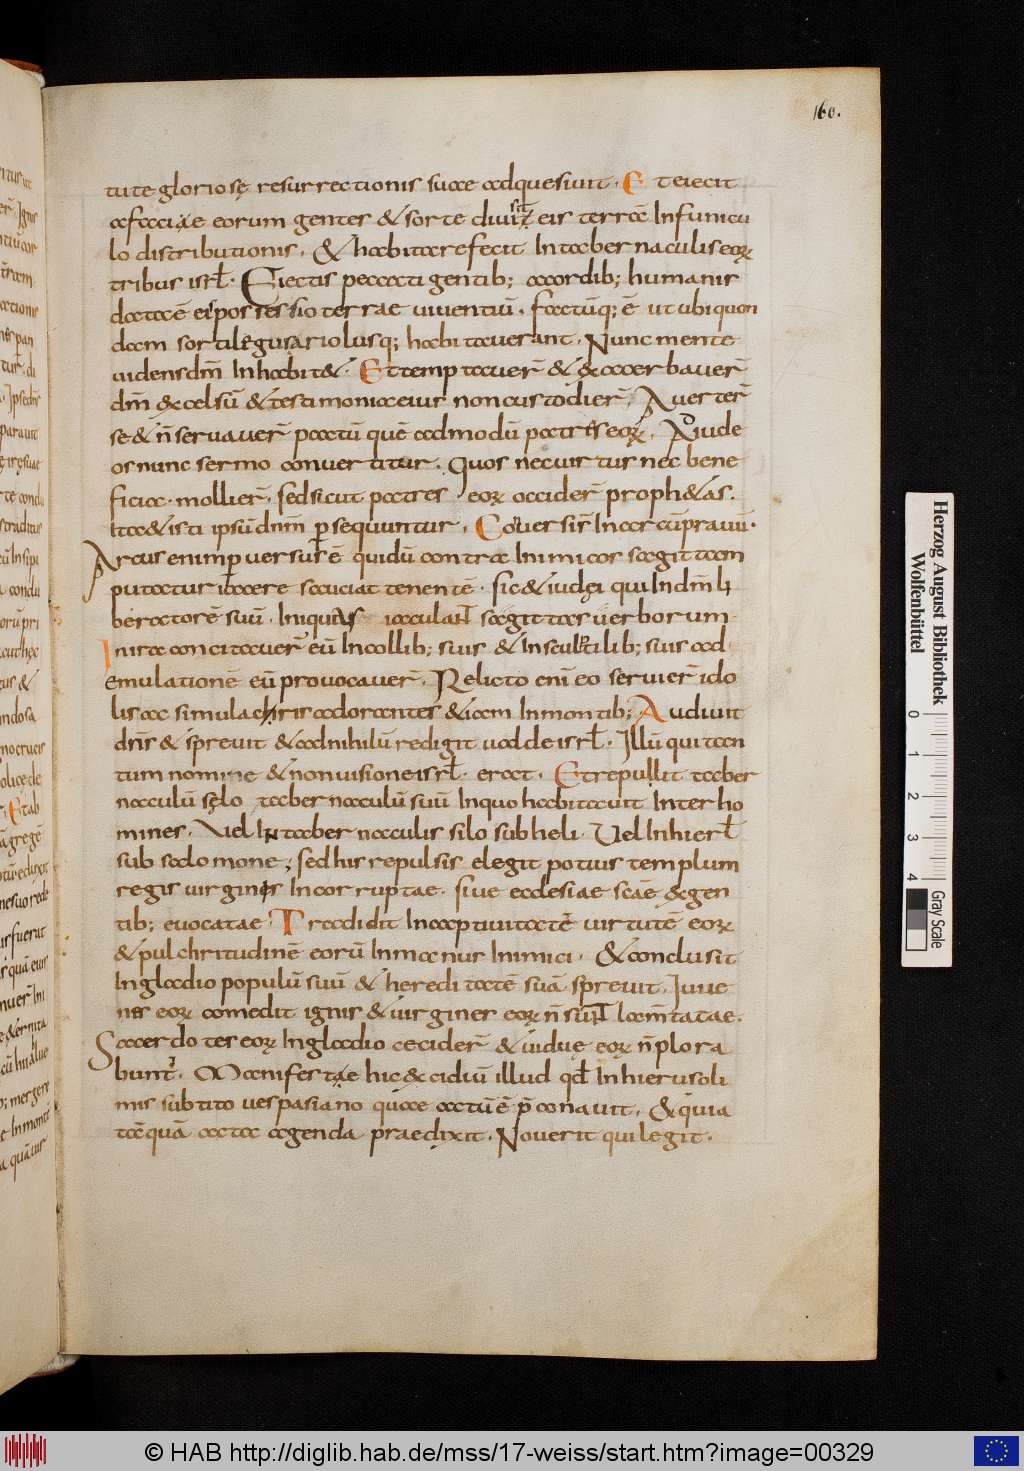 160.
tute gloriosę resurrectionis suae adquesiuit. Et eiecit
a faciae eorum gentes & sorte diuisit eis terrā In funicu
lo distributionis. & habitare fecit In tabernaculis eoꝝ
tribus isrl̄. Eiectis peccati gentib; a cordib; humanis
data ē eis possessio terrae uiuentiū. factūq; ē ut ubi quon
dam sortilegus ariolusq; habitauerant. Nunc mente
uidens dm̄ Inhabit&. Et temptauer̄ & exacerbauer̄
dm̄ excelsū & testimonia eius non custodier̄. Auerter̄
se & n̄ seruauer̄ pactū quē admodū patres eoꝝ. Ad iude
os nunc sermo conuertitur. Quos nec uirtus nec bene
ficia mollier̄. sed sicut patres eoꝝ occider̄ proph&as.
Ita & isti ipsū dnm̄ ꝑsequuntur. Conuersi sr̄ In arcū prauū.
Arcus enim ꝑuersus ē qui dū contra Inimicos sagittam
putatur iacere saeuciat tenentē. sic & iudęi qui In dm̄ li
beratorē suū. Iniquitatis iaculant̄ sagittas uerborum.
In ira concitauer̄ eū In collib; suis & In sculptilib; suis ad
emulationē eū prouocauer̄. Relicto eni eo seruier̄ ido
lis ac simulachris adorantes & iam In montib; Audiuit
dn̄s & spreuit & ad nihilū redigit ualde isrl̄. Illū qui tan
tum nomine & non uisione isrl̄. erat. Et repullit taber
naculū sęlo tabernaculū suū In quo habitauit Inter ho
mines. Vel In tabernaculis silo sub heli. Vel In hierl̄
sub salomone, sed his repulsis elegit potius templum
regis uirginis Incorruptae. siue ecclesiae scāe ex gen
tib; euocatae. Tradidit In captiuitatē uirtutē eoꝝ
& pulchritudinē eorū In manus Inimici. & conclusit
In gladio populū suū & hereditatē suā spreuit. Iuue
nes eoꝝ comedit ignis & uirgines eoꝝ n̄ sunt lamtatae.
Sacerdotes eoꝝ In gladio cecider̄ & uiduę eoꝝ n̄ plora
bunt̄. Manifestae hic excidiū illud qd̄ In hierusoli
mis sub tito uespasiano quae actū ē p̄conauit. & quia
tāquā acta agenda praedixit. Nouerit qui legit.
Herzog August Bibliothek
Wolfenbüttel
0 1 2 3 4
Gray Scale
© HAB http://diglib.hab.de/mss/17-weiss/start.htm?image=00329